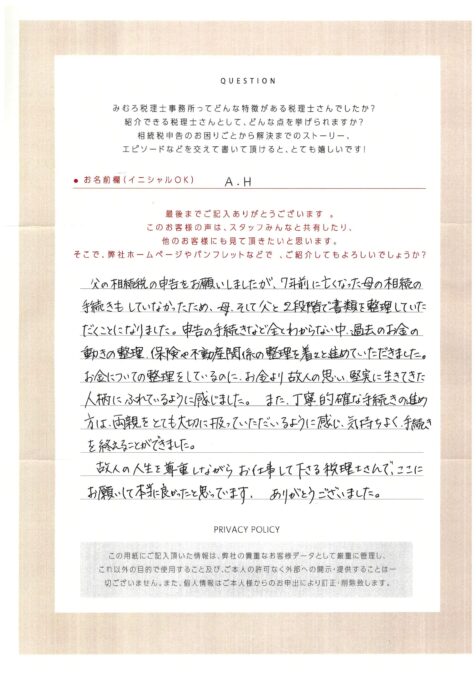 QUESTION
みむろ税理士事務所ってどんな特徴がある税理士さんでしたか？
紹介できる税理士さんとして、どんな点を挙げられますか？
相続税申告のお困りごとから解決までのストーリー、
エピソードなどを交えて書いて頂けると、とても嬉しいです！
● お名前欄（イニシャルOK） A.H
最後までご記入ありがとうございます 。
このお客様の声は、スタッフみんなと共有したり、
他のお客様にも見て頂きたいと思います。
そこで、弊社ホームページやパンフレットなどで 、ご紹介してもよろしいでしょうか？
父の相続税の申告をお願いしましたが、7年前に亡くなった母の相続の
手続きもしていなかったため、母、そして父と2段階で書類を整理していた
だくことになりました。申告の手続きなど全くわからない中、過去のお金の
動きの整理、保険や不動産関係の整理を着々と進めていただきました。
お金についての整理をしているのに、お金より故人の思い、堅実に生きてきた
人柄にふれているように感じました。 また、丁寧、的確な手続きの進め
方は、両親をとても大切に扱っていただいるように感じ、気持ちよく、手続き
を終えることができました。
故人の人生を尊重しながらお仕事して下さる税理士さんで、ここに
お願いして本当に良かったと思っています。 ありがとうございました。
PRIVACY POLICY
この用紙にご記入頂いた情報は、弊社の貴重なお客様データとして厳重に管理し、
これ以外の目的で使用すること及び、ご本人の許可なく外部への開示・提供することは一
切ございません。また、個人情報はご本人様からのお申出により訂正・削除致します。